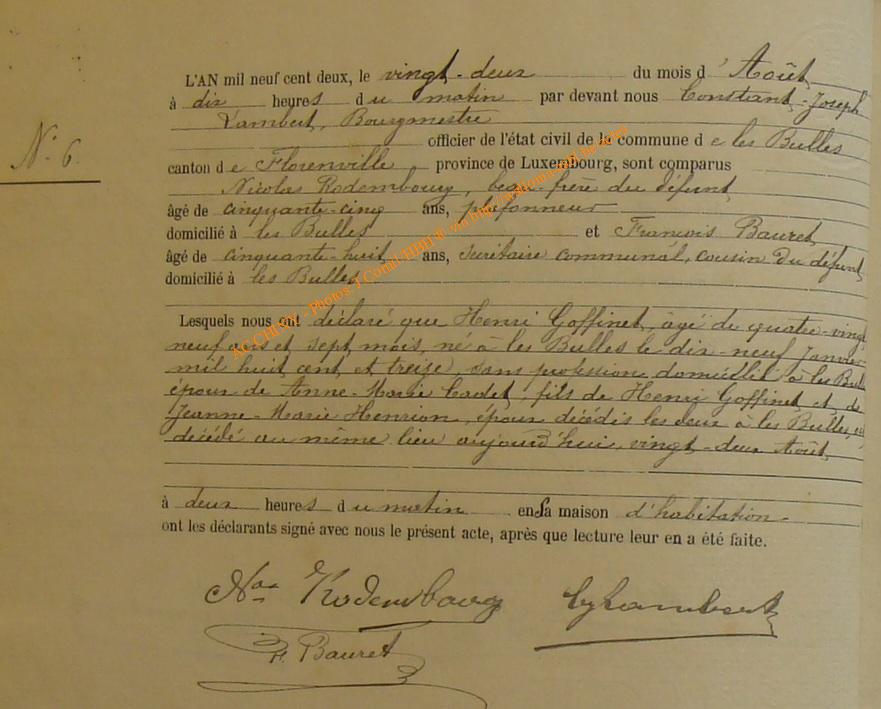 L'AN mil neuf cent deux, le vingt-deux du mois d'Août
à dix heures du matin par devant nous Constant-Joseph
Lambert, Bourgmestre
officier de l'état civil de la commune de les Bulles
N° 6.
canton de Florenville province de Luxembourg, sont comparus
Nicolas Rodembourg, beau-frère du défunt
âgé de cinquante-cinq ans, plafonneur
domicilié à les Bulles et François Bauret
âgé de cinquante-huit ans, secrétaire communal, cousin du défunt
domicilié à les Bulles
Lesquels nous ont déclaré que Henri Goffinet, âgé de quatre-vingt
neuf ans et sept mois, né à les Bulles le dix-neuf Janvier
mil huit cent et treize, sans profession domicilié à les Bulles
époux de Anne-Marie Cadet, fils de Henri Goffinet et de
Jeanne-Marie Henrion, époux décédés les deux à les Bulles, est
décédé au même lieu aujourd'hui vingt-deux Août
à deux heures du matin en sa maison d'habitation
ont les déclarants signé avec nous le présent acte, après que lecture leur en a été faite.
Nas Rodembourg
Lambert
F. Bauret
AC CHINY - Photos